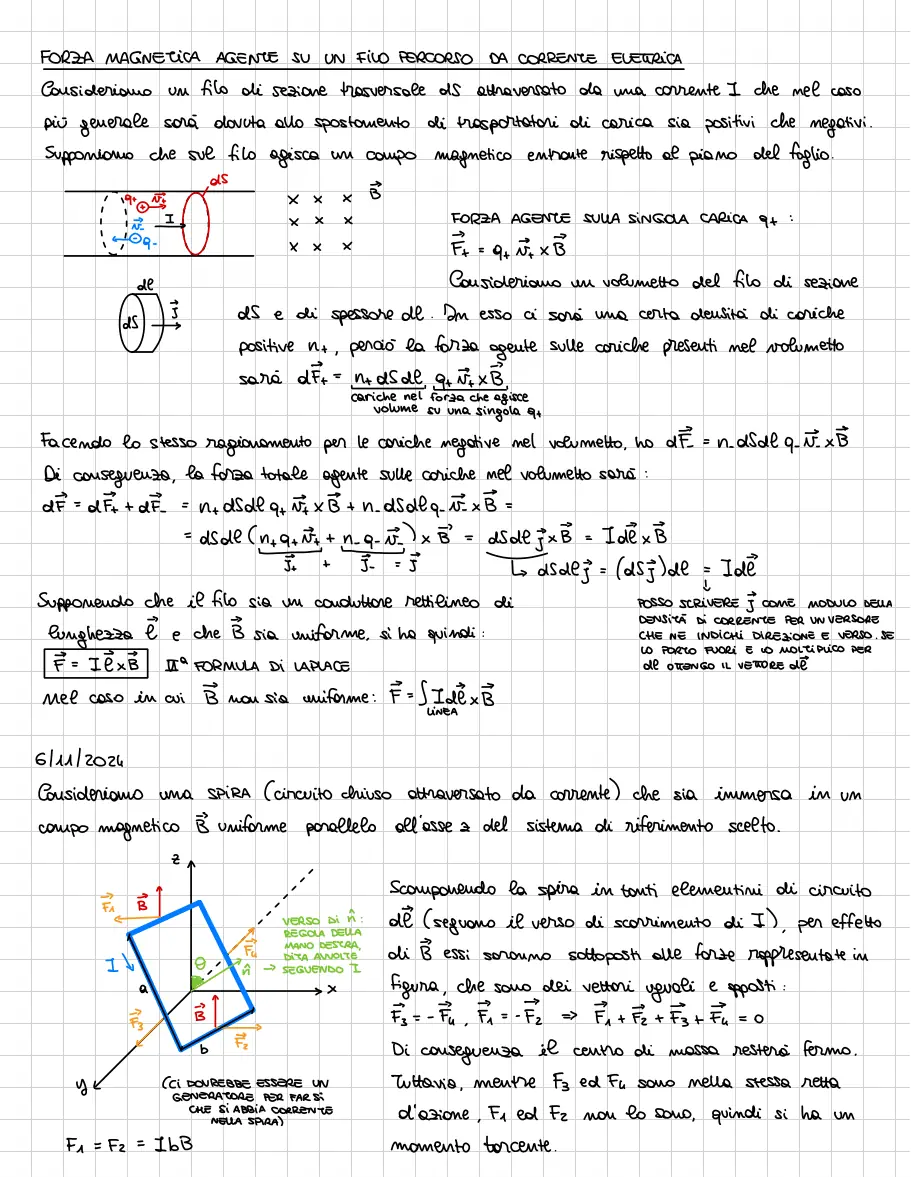 FORZA MAGNETICA AGENTE SU UN FILO PERCORSO DA CORRENTE ELETTRICA
Consideriamo un filo di sezione trasversale dS attraversato da una corrente I che nel caso
più generale sarà dovuta allo spostamento di trasportatori di carica sia positivi che negativi.
Supponiamo che sul filo agisca un campo magnetico entrante rispetto al piano del foglio.
dS
q₊ v⃗₊
I
v⃗₋
q₋
× × × B⃗
× × ×
× × ×
FORZA AGENTE SULLA SINGOLA CARICA q₊ :
F⃗₊ = q₊ v⃗₊ × B⃗
Consideriamo un volumetto del filo di sezione
dl
dS
J⃗
dS e di spessore dl. In esso ci sarà una certa densità di cariche
positive n₊, perciò la forza agente sulle cariche presenti nel volumetto
sarà dF⃗₊ = n₊ dS dl q₊ v⃗₊ × B⃗
cariche nel volume
forza che agisce su una singola q₊
Facendo lo stesso ragionamento per le cariche negative nel volumetto, ho dF⃗₋ = n₋ dS dl q₋ v⃗₋ × B⃗
Di conseguenza, la forza totale agente sulle cariche nel volumetto sarà :
dF⃗ = dF⃗₊ + dF⃗₋ = n₊ dS dl q₊ v⃗₊ × B⃗ + n₋ dS dl q₋ v⃗₋ × B⃗ =
= dS dl (n₊ q₊ v⃗₊ + n₋ q₋ v⃗₋) × B⃗ = dS dl j⃗ × B⃗ = I dl⃗ × B⃗
J⃗₊ + J⃗₋ = J⃗
↳ dS dl j⃗ = (dS j⃗) dl = I dl⃗
↓
POSSO SCRIVERE J⃗ COME MODULO DELLA
DENSITÀ DI CORRENTE PER UN VERSORE
CHE NE INDICHI DIREZIONE E VERSO. SE
LO PORTO FUORI E LO MOLTIPLICO PER
dl OTTENGO IL VETTORE dl⃗
Supponendo che il filo sia un conduttore rettilineo di
lunghezza l⃗ e che B⃗ sia uniforme, si ha quindi :
F⃗ = I l⃗ × B⃗ IIª FORMULA DI LAPLACE
Nel caso in cui B⃗ non sia uniforme: F⃗ = ∫ I dl⃗ × B⃗
LINEA
6/11/2024
Consideriamo una SPIRA (circuito chiuso attraversato da corrente) che sia immersa in un
campo magnetico B⃗ uniforme parallelo all'asse z del sistema di riferimento scelto.
z
F⃗₁
B⃗
VERSO DI n̂ :
REGOLA DELLA
MANO DESTRA,
DITA AVVOLTE
→ SEGUENDO I
F⃗₄
I
θ
n̂
a
x
F⃗₃
B⃗
F⃗₂
b
y
(CI DOVREBBE ESSERE UN
GENERATORE PER FAR SÌ
CHE SI ABBIA CORRENTE
NELLA SPIRA)
F₁ = F₂ = IbB
Scomponendo la spira in tanti elementini di circuito
dl⃗ (seguono il verso di scorrimento di I), per effetto
di B⃗ essi saranno sottoposti alle forze rappresentate in
figura, che sono dei vettori uguali e opposti :
F⃗₃ = - F⃗₄ , F⃗₁ = - F⃗₂ ⇒ F⃗₁ + F⃗₂ + F⃗₃ + F⃗₄ = 0
Di conseguenza il centro di massa resterà fermo.
Tuttavia, mentre F₃ ed F₄ sono nella stessa retta
d'azione, F₁ ed F₂ non lo sono, quindi si ha un
momento torcente.